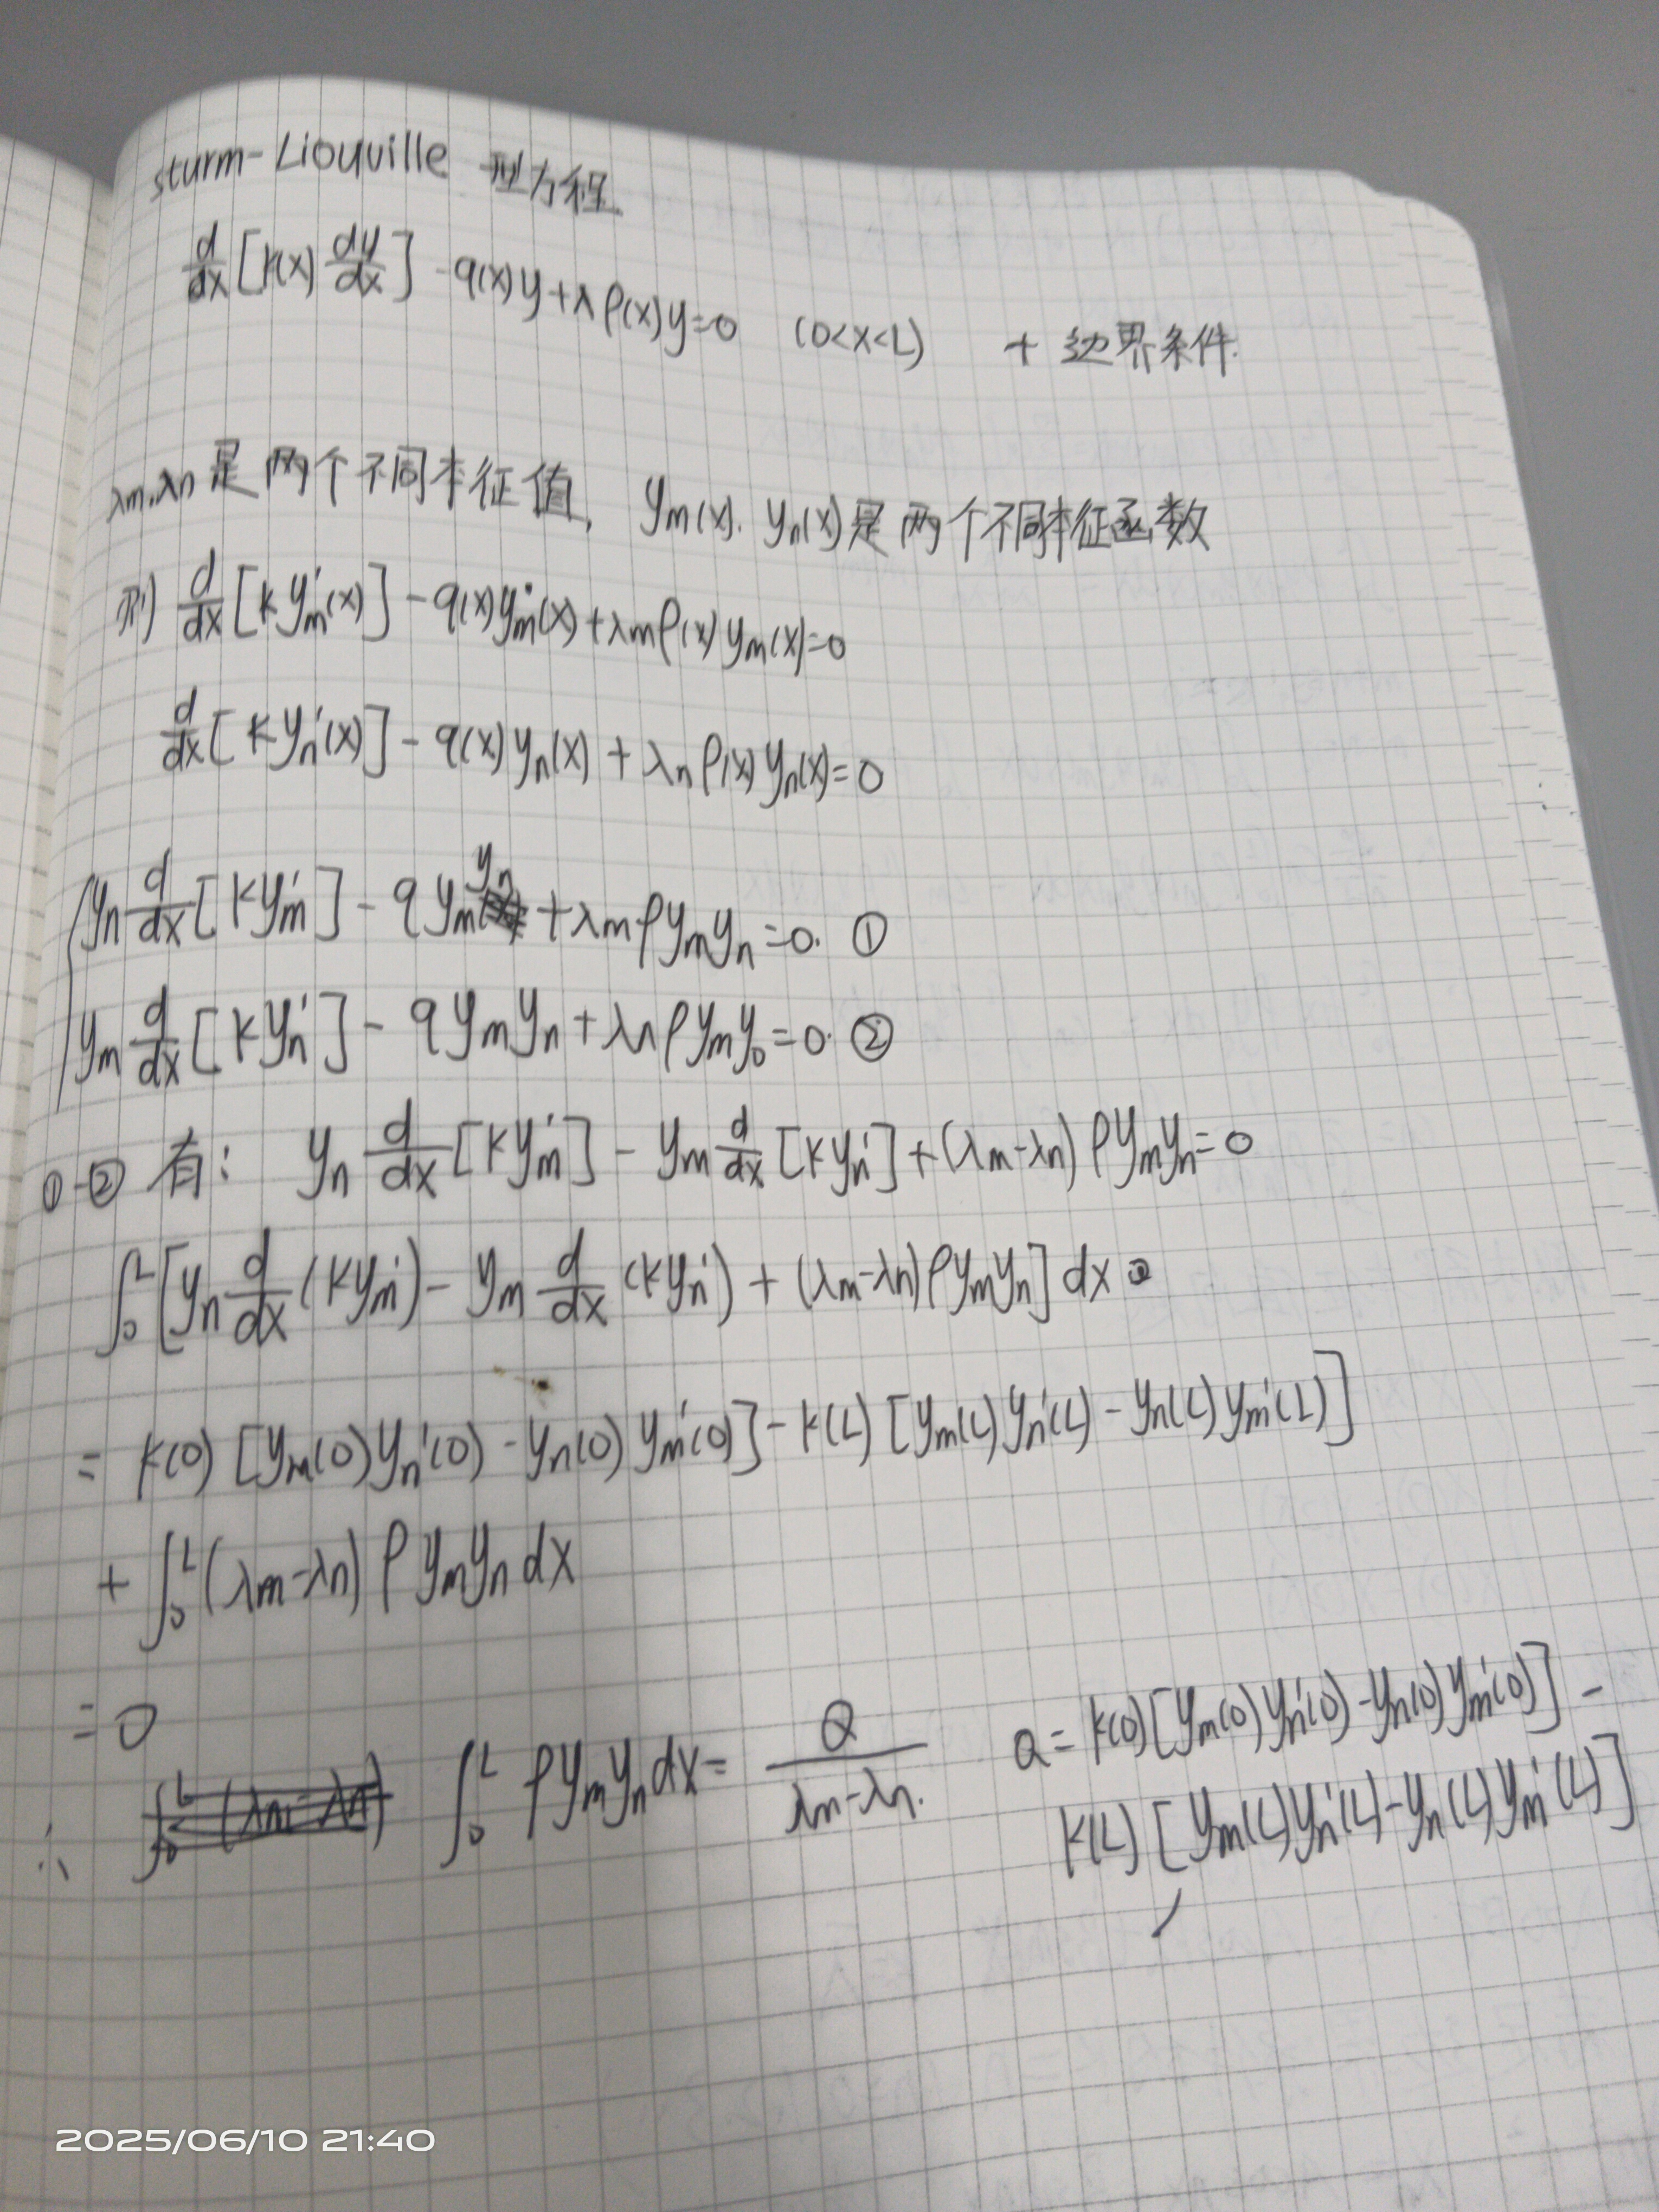 sturm-Liouville 型方程
d/dx [k(x) dy/dx] - q(x)y + λρ(x)y = 0 (0<x<L) + 边界条件.
λm, λn 是两个不同本征值, ym(x). yn(x) 是两个不同本征函数
则 d/dx [k ym'(x)] - q(x)ym(x) + λmρ(x)ym(x) = 0
d/dx [k yn'(x)] - q(x)yn(x) + λnρ(x)yn(x) = 0
yn d/dx [k ym'] - q ym yn + λmρ ym yn = 0. ①
ym d/dx [k yn'] - q ym yn + λnρ ym yn = 0. ②
①-② 有: yn d/dx [k ym'] - ym d/dx [k yn'] + (λm-λn)ρ ym yn = 0
∫₀ᴸ [yn d/dx (k ym') - ym d/dx (k yn') + (λm-λn)ρ ym yn] dx
= k(0) [ym(0)yn'(0) - yn(0)ym'(0)] - k(L) [ym(L)yn'(L) - yn(L)ym'(L)]
+ ∫₀ᴸ (λm-λn)ρ ym yn dx
= 0
∴ ∫₀ᴸ ρ ym yn dx = Q/(λm-λn). Q = k(0)[ym(0)yn'(0) - yn(0)ym'(0)] -
k(L) [ym(L)yn'(L) - yn(L)ym'(L)]
2025/06/10 21:40